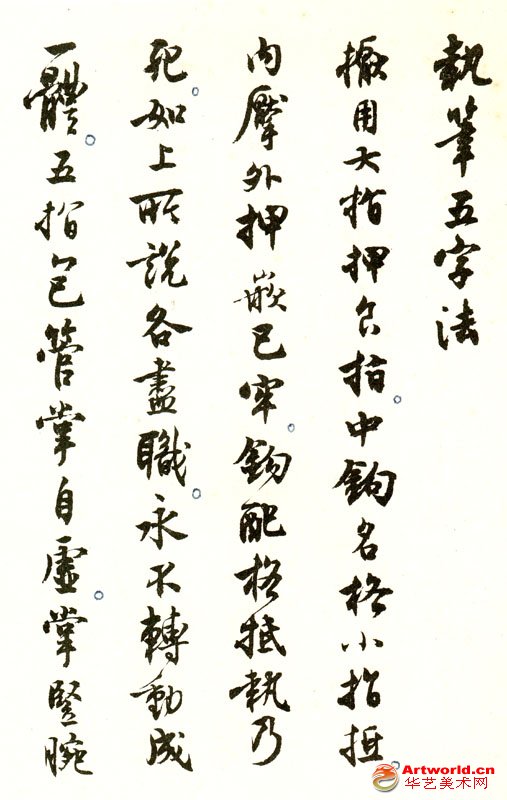 執筆五字法
擫用大指押食指中鉤名格小指抵
内擫外押嵌已牢鉤配格抵執乃
死如上所說各盡職永不轉動成
一體五指包管掌自虛掌豎腕
Artworld.cn
华艺美术网